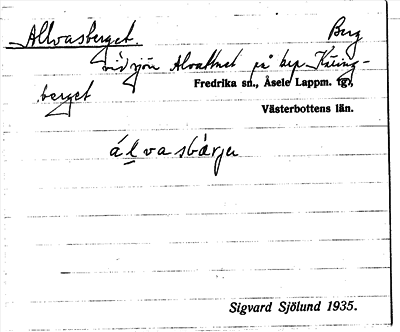 Allvasberget. Berg
vid sjön Alvattnet på kap. Käring-
berget
Fredrika sn., Åsele Lappm. tg),
Västerbottens län.
álvasbärje
Sigvard Sjölund 1935.